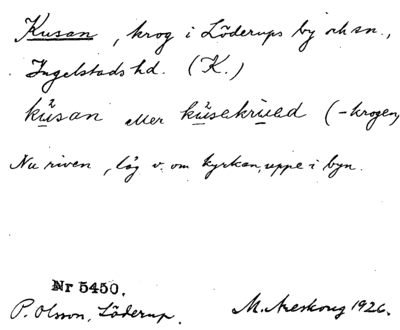 Kusan, krog i Löderups by och sn.,
Ingelstads hd. (K.)
kusan eller kusekrued (-krogen)
Nu riven, låg v. om kyrkan, uppe i byn.
Nr 5450.
P. Olsson, Löderup. M. Areskoug 1926.